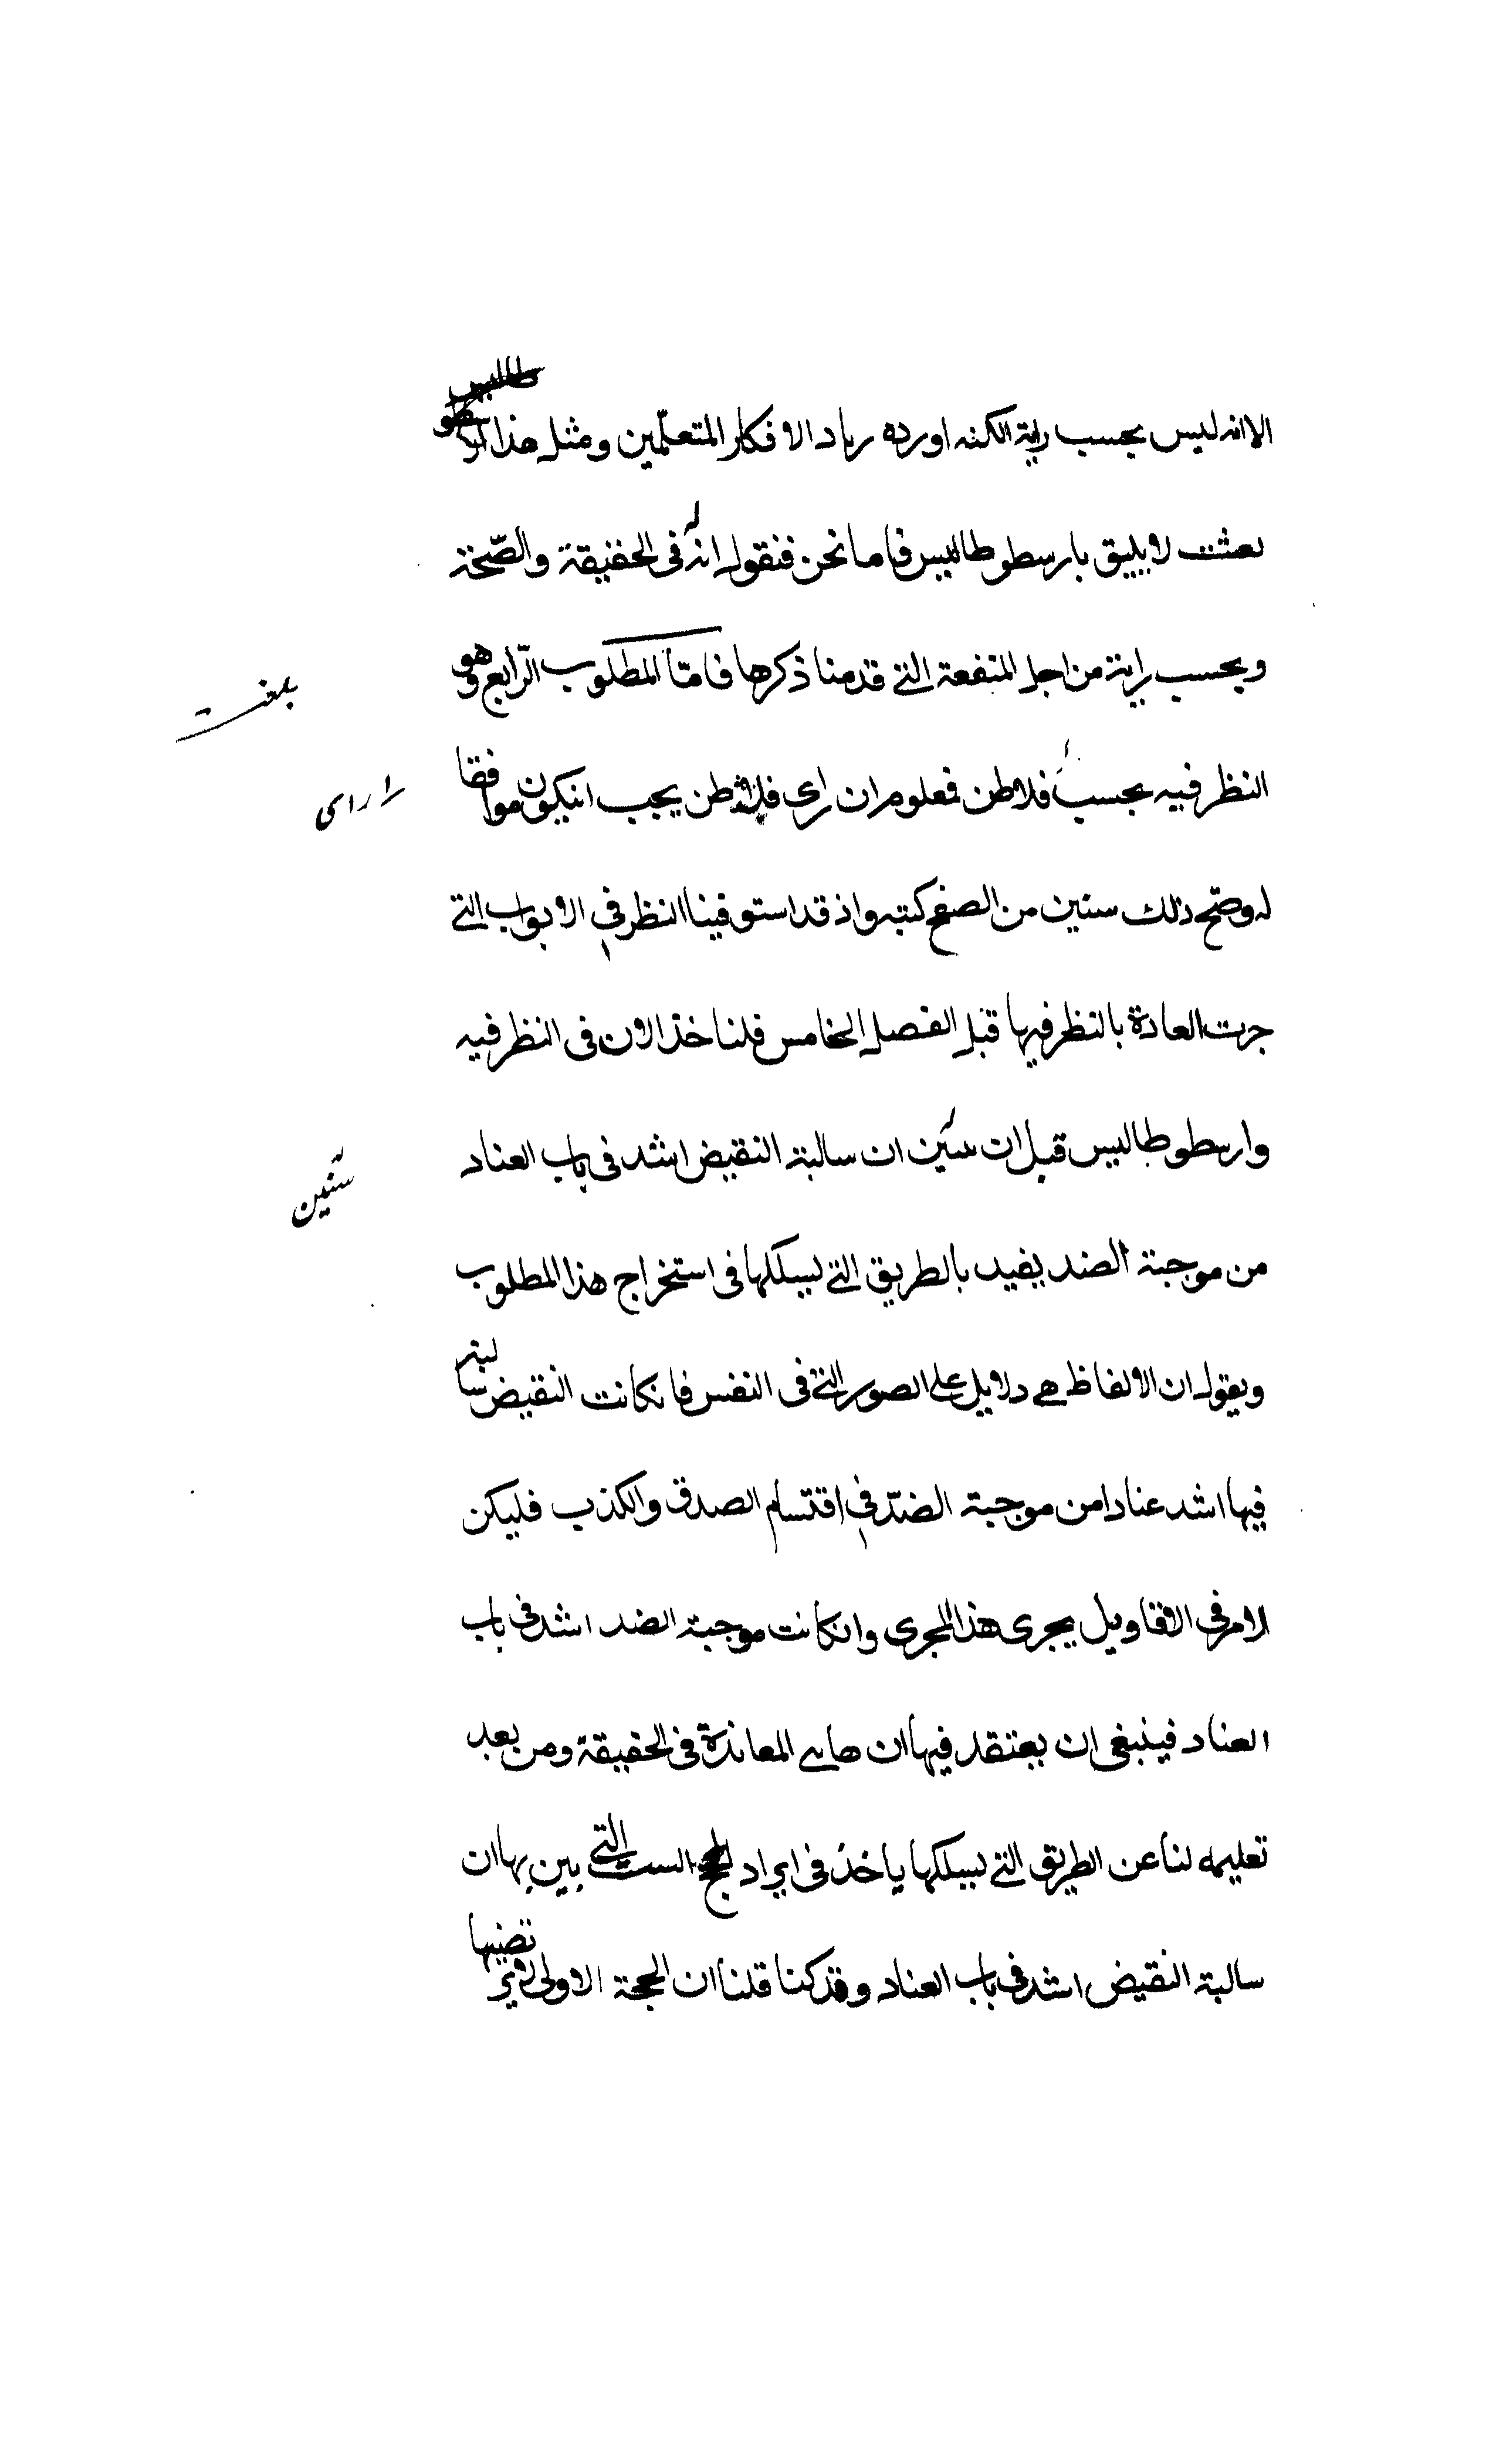 الا انه ليس بحسب رايه لكنه اورده رياد الافكار المتعلّمين ومثل هذا
بعثت لا يليق بارسطوطاليس فاما نحن فنقول انه فى الحقيقة والصّحة
وبحسب رايه من اجل المنفعة التى قدمنا ذكرها فامّا المطلوب الرّابع وهو
بلغت
النظر فيه بحسب فلاطن فمعلوم ان راى فلاطن يجب انيكون موافقا
راى
له وضح ذلك ستين من الصفح كتبه واذ قد استوفينا النظر فى الابواب التى
جرت العادة بالنظر فيها قبل الفصل الخامس فلناخذ الان فى النظر فيه
وارسطوطاليس قبل ان يبين ان سالبة النقيض اشد فى باب العناد
من موجبة الضد يفيد بالطريق التى يسلكها فى استخراج هذا المطلوب
ويقول ان الالفاظ هى دلايل على الصور التى فى النفس فانكانت النقيض سالبته
فيها اشد عنادا من موجبة الضدّ فى اقتسام الصدق والكذب فليكن
الامر فى الاقاويل يجرى هذا المجرى وانكانت موجبة الضد اشد فى باب
العناد فينبغى ان يعتقد فيها ان هاهى المعاندة فى الحقيقة ومن بعد
تعليمه لنا عن الطريق التى يسلكها ياخذ فى ايراد الحجج الست التى يبين بها ان
سالبة النقيض اشد فى باب العناد وقد كنا قلنا ان الحجة الاولى